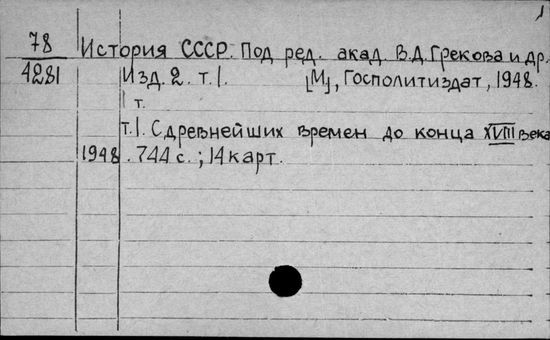 1
78 История СССР. Под ред. акад. В.Д.Грекова и др.
4281 Изд. 2. т. 1. [М], Госполитиздат, 1948.
1 т.
т. 1. С древнейших времен до конца XVIII века
1948. 744 с.; 14 карт.